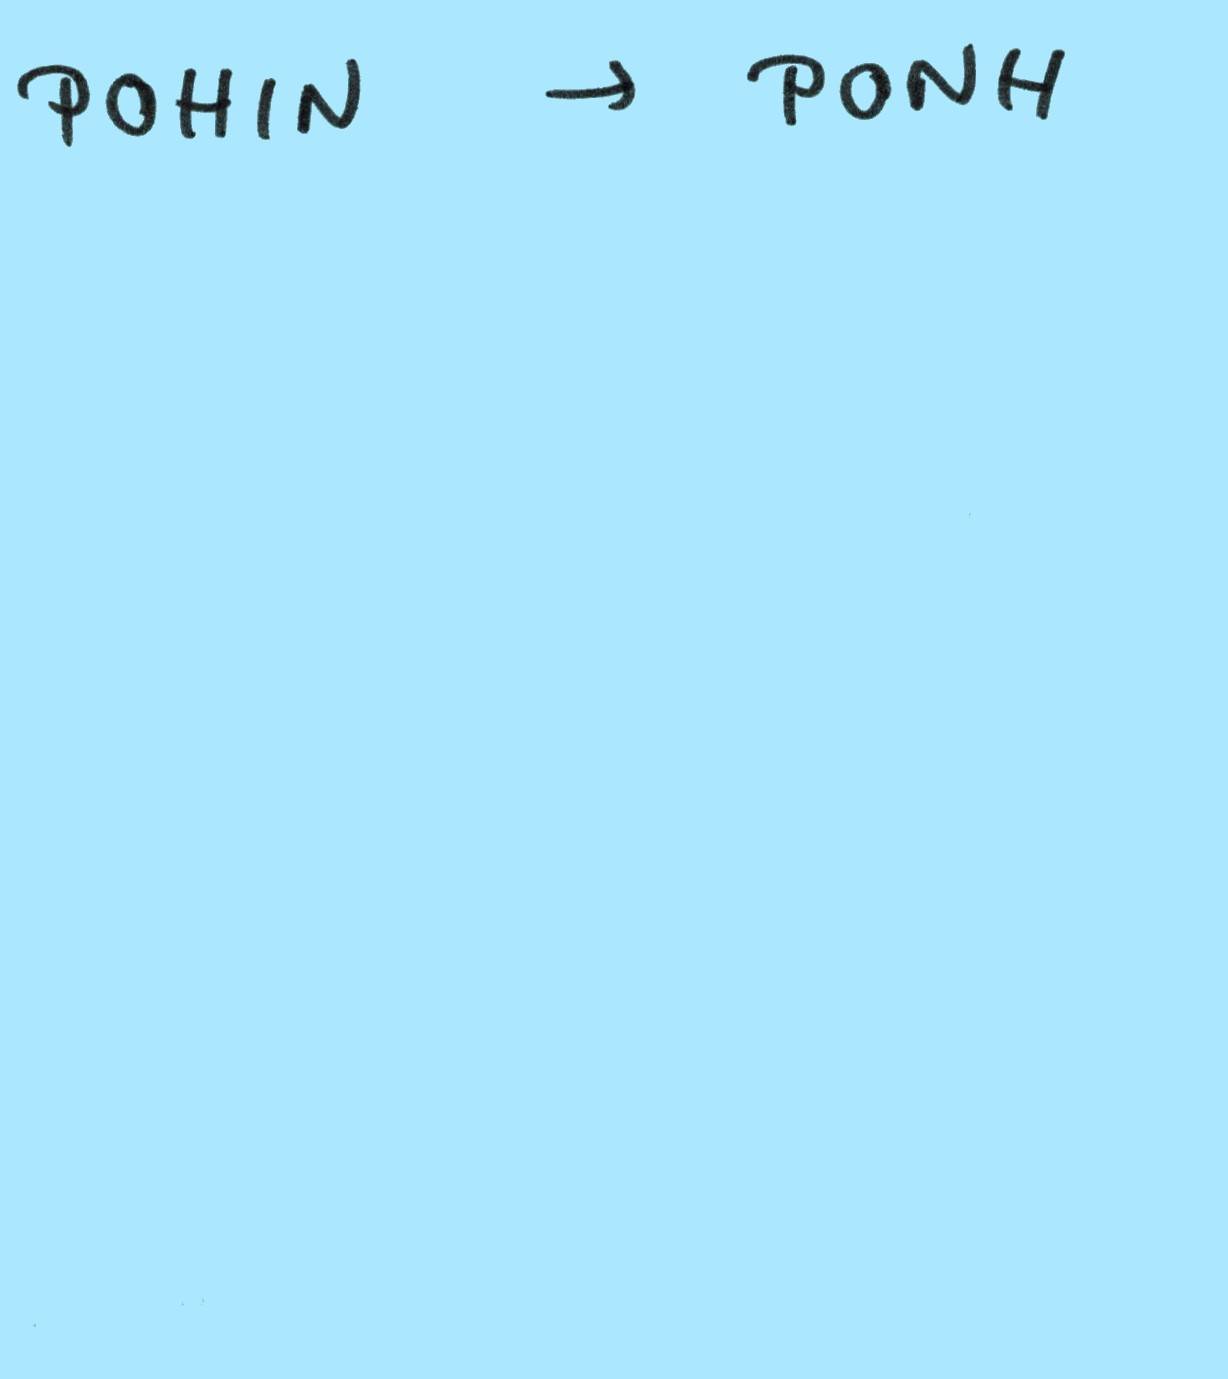 POHIN → PONH